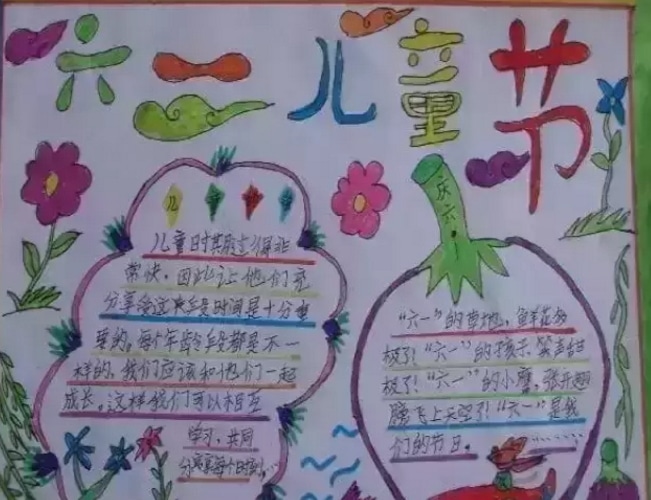 六一儿童节
儿童时期过得非
常快，因此让他们充
分享受这段时间是十分重
要的。每个年龄段都是不一
样的，我们应该和他们一起
成长，这样我们可以相互
学习，共同
分享每个时刻……
庆六一
“六一”的草地，鲜花
极了！“六一”的孩子，笑声甜
极了！“六一”的小鹰，张开翅
膀飞上天空了！“六一”是我
们的节日。…………